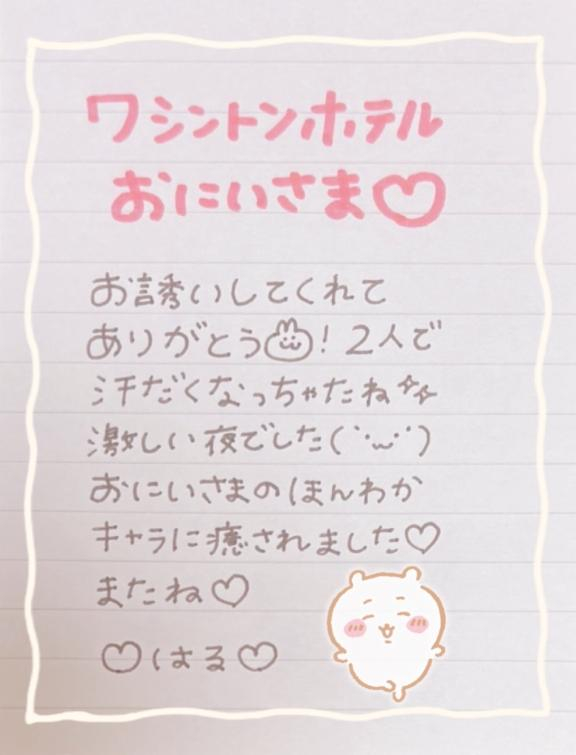 ワシントンホテル
おにいさま♡
お誘いしてくれて
ありがとう! 2人で
汗だくなっちゃたね✨
激しい夜でした(˙ω˙)
おにいさまのほんわか
キャラに癒されました♡
またね♡
♡はる♡